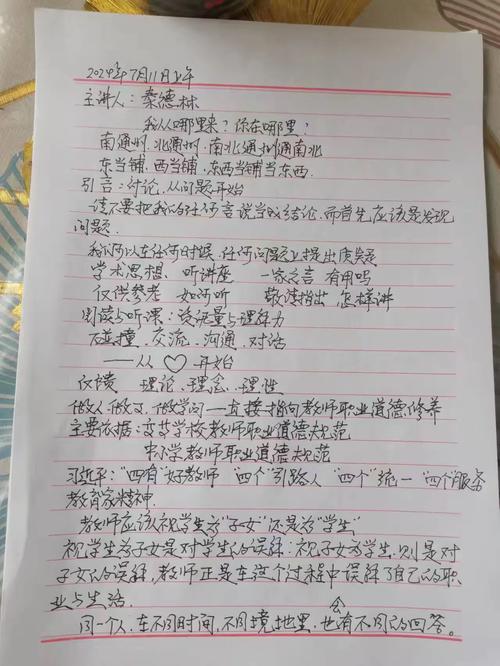 2024年7月11日上午
主讲人：秦德林
我从哪里来？你在哪里？
南通州，北通州，南北通州通南北
东当铺，西当铺，东西当铺当东西
引言：讨论，从问题开始
请不要把我的任何言说当成结论，而首先应该是发现
问题
我们可以在任何时候、任何问题上提出质疑
学术思想、听讲座 一家之言 有用吗
仅供参考 如何听 敬请指出 怎样讲
阅读与听课：阅量与理解力
碰撞、交流、沟通、对话
——从♡开始
反馈 理论、理念、理性
做人、做文、做学问——直接指向教师职业道德修养
主要依据：高等学校教师职业道德规范
中小学教师职业道德规范
习近平："四有"好教师 "四个"引路人 "四个"统一 "四个"服务
教育家精神
教师应该视学生为"子女"还是为"学生"
视学生为子女是对学生的误解；视子女为学生，则是对
子女的误解，教师正是在这个过程中误解了自己的职
业与生活
同一个人，在不同时间，不同境地里，也会有不同的回答。